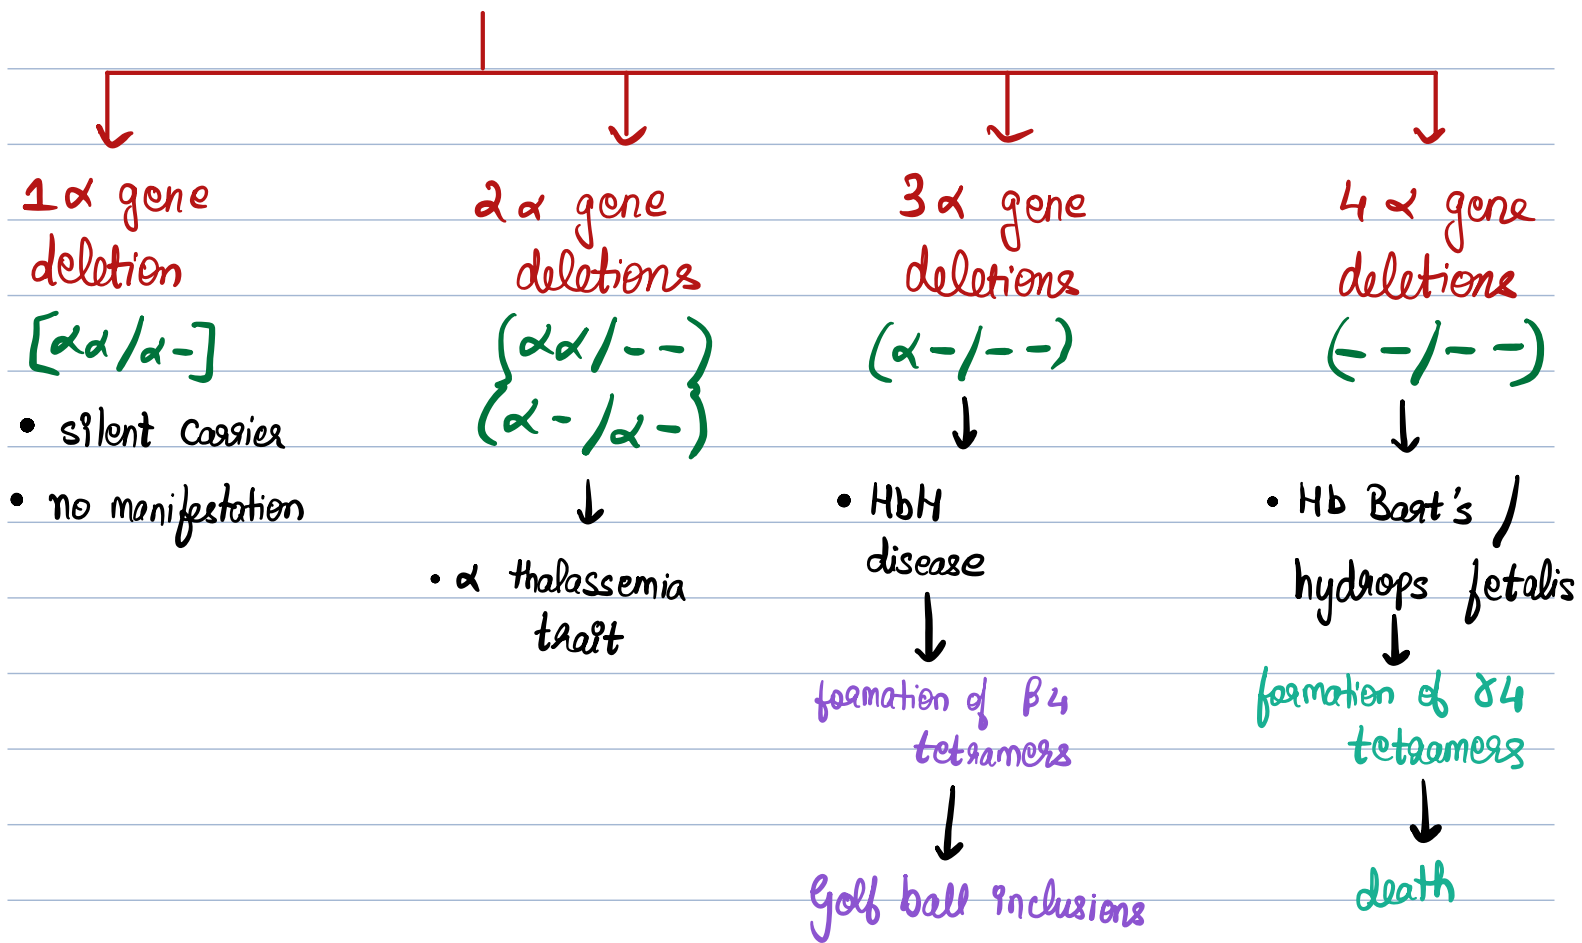 1 α gene
deletion
[αα/α-]
• silent carrier
• no manifestation
2 α gene
deletions
(αα/--)
(α-/α-)
• α thalassemia
trait
3 α gene
deletions
(α-/--)
• HbH
disease
formation of β4
tetramers
Golf ball inclusions
4 α gene
deletions
(--/--)
• Hb Bart's /
hydrops fetalis
formation of γ4
tetramers
death